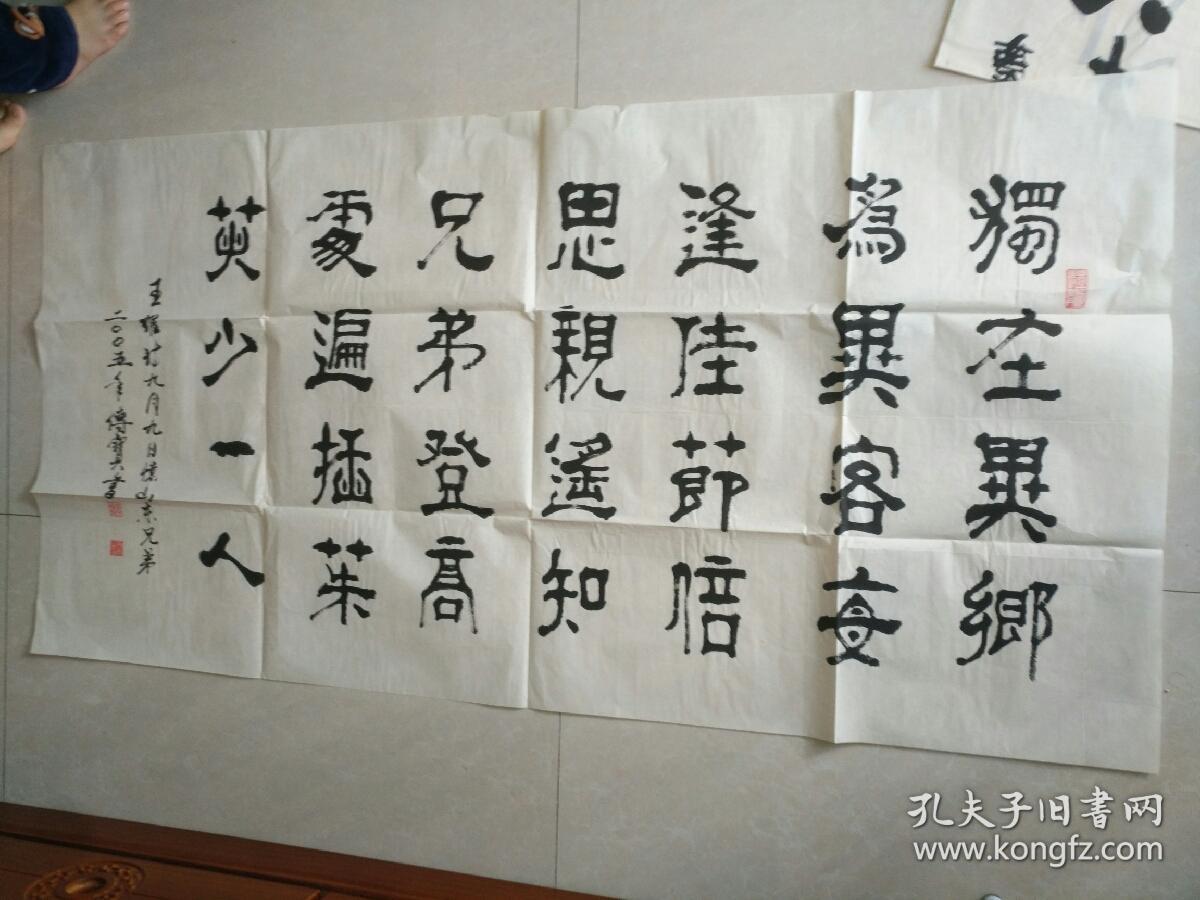 獨在異鄉
為異客每
逢佳節倍
思親遙知
兄弟登高
處遍插茱
萸少一人
王維詩九月九日憶山東兄弟
二〇〇五年 傅寶 書
孔夫子旧书网
www.kongfz.com